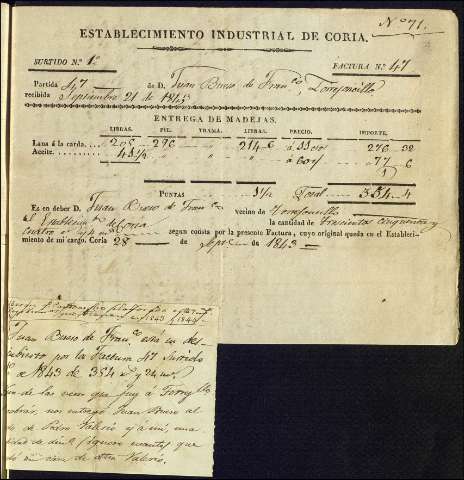 Nº 71.
ESTABLECIMIENTO INDUSTRIAL DE CORIA.
SURTIDO N.º 1º FACTURA N.º 47
Partida 47 de D. Juan Bueso de Fran.co, Torrejoncillo
recibida Septiembre 21 de 1843
ENTREGA DE MADEJAS.
LIBRAS. PIE. TRAMA. LIBRAS. PRECIO. IMPORTE.
Lana á la carda. 208 290 214 6 á 276 32
Aceite. 45 1/4 á 77 6
PUNTAS 3 1/2 Total 354 4
Es en deber D. Juan Bueso de Fran.co vecino de Torrejoncillo
al Establecim.to de Coria la cantidad de Trescientos cinquenta y
cuatro segun consta por la presente Factura, cuyo original queda en el Estableci-
miento de mi cargo. Coria 28 de Sept.e de 1843
1843 1844
Juan Bueso de Fran.co está en des-
cubierto por la Factura 47 Surtido
1º de 1843 de 354
de las veces que fuy á Torrej.llo
nos entregó Juan Bueso al
de Pedro Valerio y a mi, una
cantidad de din.o que
de otro Valerio.